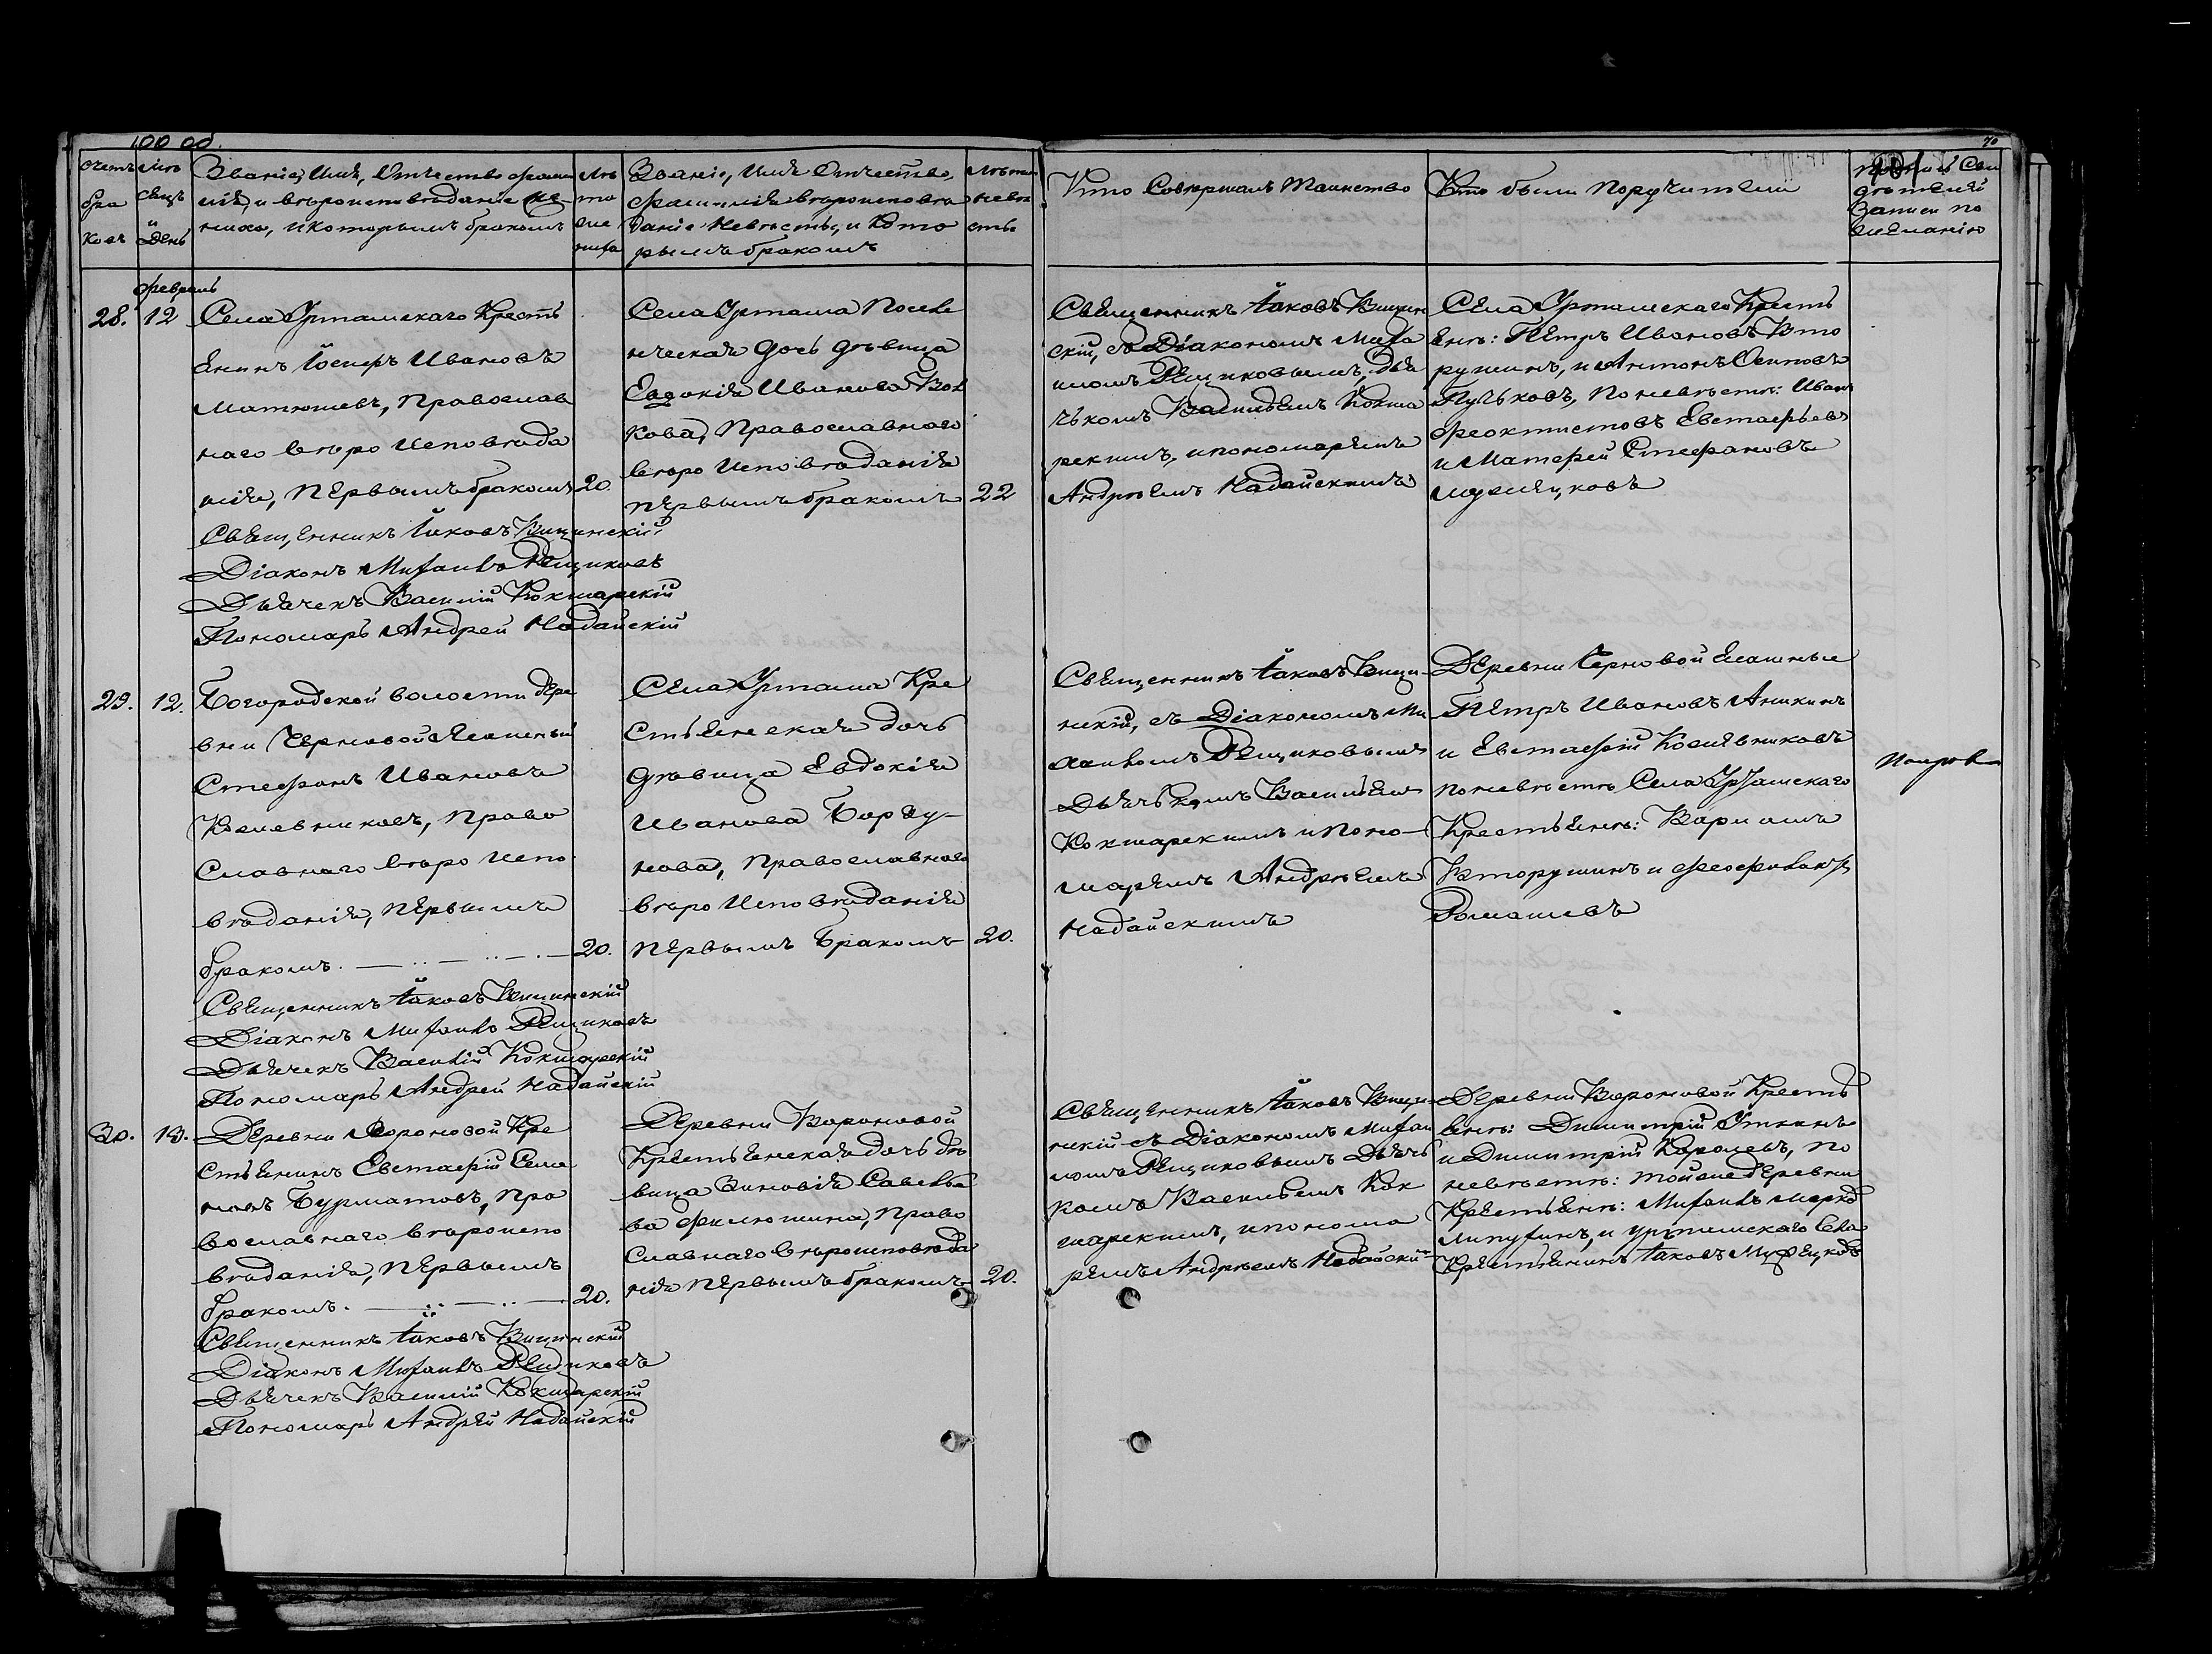 100 об.
70
Счетъ
бра
ковъ
Мѣ
сяцъ
и
День
Званіе, Имя, Отчество фами
лія, и вѣроисповѣданіе Же-
ниха, и которымъ бракомъ
Лѣ
та
же
ниха
Званіе, Имя Отчество,
фамилія вѣроисповѣ
даніе Невѣсты, и кото
рымъ бракомъ
Лѣта
невѣ
сты
Кто Совершалъ Таинство
Кто были Поручители
Свы
дѣтелей
Записи по
желанію
Февраль
28. 12
Села Уртамскаго Кресть
янинъ Іосифъ Ивановъ
Матюшевъ, Православ
наго вѣро исповѣда
нія, Первымъ бракомъ 20.
Священникъ Іаковъ Вицинскій
Діаконъ Михаилъ Рещиковъ
Дьячекъ Василій Кокшарскій
Пономарь Андрей Надайскій
Села Уртама Поселе
нческая дочь дѣвица
Евдокія Иванова Вол
кова, Православнаго
вѣро исповѣданія
первымъ бракомъ 22
Священникъ Іаковъ Вицин
скій, съ Діакономъ Миха
иломъ Рещиковымъ, Дья
чькомъ Васильемъ Кокша
рскимъ, и пономаремъ
Андрѣемъ Надайскимъ
Села Уртамскаго Кресть
яне: Петръ Ивановъ Вто
рушинъ, и Антонъ Осиповъ
Пульковъ, По невѣстѣ: Иванъ
Феоктистовъ Евстафьевъ
и Матфей Стефановъ
Мужецковъ
29. 12.
Богородской волости дере
вни Черновой Ясашный
Стефанъ Ивановъ
Кожевниковъ, Право
Славнаго вѣро испо
вѣданія, Первымъ
бракомъ. 20.
Священникъ Іаковъ Вицинскій
Діаконъ Михаилъ Рещиковъ
Дьячекъ Василій Кокшарскій
Пономарь Андрей Надайскій
Села Уртама Кре
стьянская дочь
дѣвица Евдокія
Иванова Боргу-
нова, Православнаго
вѣро исповѣданія
Первымъ Бракомъ 20.
Священникъ Іаковъ Вици-
нскій, съ Діакономъ Ми
хаиломъ Рещиковымъ
Дьячькомъ Васильемъ
Кокшарскимъ и Поно-
маремъ Андрѣемъ
Надайскимъ
Деревни Черновой Ясашные
Петръ Ивановъ Аникинъ
и Евстафій Кожевниковъ
по невѣстѣ Села Уртамскаго
Крестьяне: Варламъ
Вторушинъ и Феофилактъ
Ромашевъ
30. 13.
Деревни Вороновой Кре
стьянинъ Евстафій Семе
новъ Бурматовъ, Пра
вославнаго вѣроиспо
вѣданія, Первымъ
бракомъ. 20.
Священникъ Іаковъ Вицинскій
Діаконъ Михаилъ Рещиковъ
Дьячекъ Василій Кокшарскій
Пономарь Андрей Надайскій
Деревни Вороновой
Крестьянская дочь дѣ
вица Зиновія Савелье
ва Филюшина, Право
славнаго вѣроисповѣда
нія Первымъ бракомъ 20.
Священникъ Іаковъ Вици
нскій съ Діакономъ Михаи
ломъ Рещиковымъ Дьячь
комъ Васильемъ Кок
шарскимъ, и понома
ремъ Андрѣемъ Надайскимъ
Деревни Вороновой Кресть
яне: Димитрій Уткинъ
и Димитрій Королевъ, По
невѣстѣ: той же деревни
Крестьяне: Михаилъ Марко
Липухинъ, и Уртамскаго Села
Крестьянинъ Іаковъ Мужецковъ